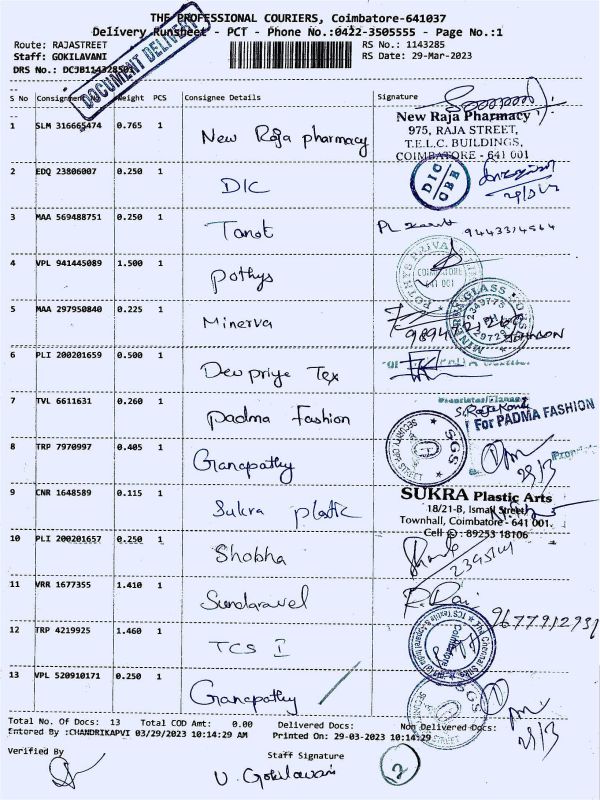 THE PROFESSIONAL COURIERS, Coimbatore-641037
Delivery Runsheet - PCT - Phone No.:0422-3505555 - Page No.:1
Route: RAJASTREET RS No.: 1143285
Staff: GOKILAVANI RS Date: 29-Mar-2023
DRS No.:
DOCUMENT DELIVERY
S No Weight PCS Consignee Details Signature
1 SLM 316665474 0.765 1 New Raja pharmacy
New Raja Pharmacy
975, RAJA STREET,
T.E.L.C. BUILDINGS,
COIMBATORE - 641 001
2 EDQ 23806007 0.250 1 DIC
DIC CBE
3 MAA 569488751 0.250 1 Tanot
4 VPL 941445089 1.500 1 Pothys
COIMBATORE
641 001
5 MAA 297950840 0.225 1 Minerva
6 PLI 200201659 0.500 1 Devpriye Tex
7 TVL 6611631 0.260 1 Padma Fashion
For PADMA FASHION
8 TRP 7970997 0.405 1 Ganapathy
SGS
29/3
9 CNR 1648589 0.115 1 Sukra plastic
SUKRA Plastic Arts
18/21-B, Ismail Street,
Townhall, Coimbatore - 641 001.
Cell : 89253 18106
10 PLI 200201657 0.250 1 Shobha
11 VRR 1677355 1.410 1 Sundaravel
9677912931
12 TRP 4219925 1.460 1 TCS I
13 VPL 520910171 0.250 1 Ganapathy
29/3
Total No. Of Docs: 13 Total COD Amt: 0.00 Delivered Docs: Non Delivered Docs:
Entered By :CHANDRIKAPVI 03/29/2023 10:14:29 AM Printed On: 29-03-2023 10:14:29
Verified By Staff Signature
V. Gokilavani 2